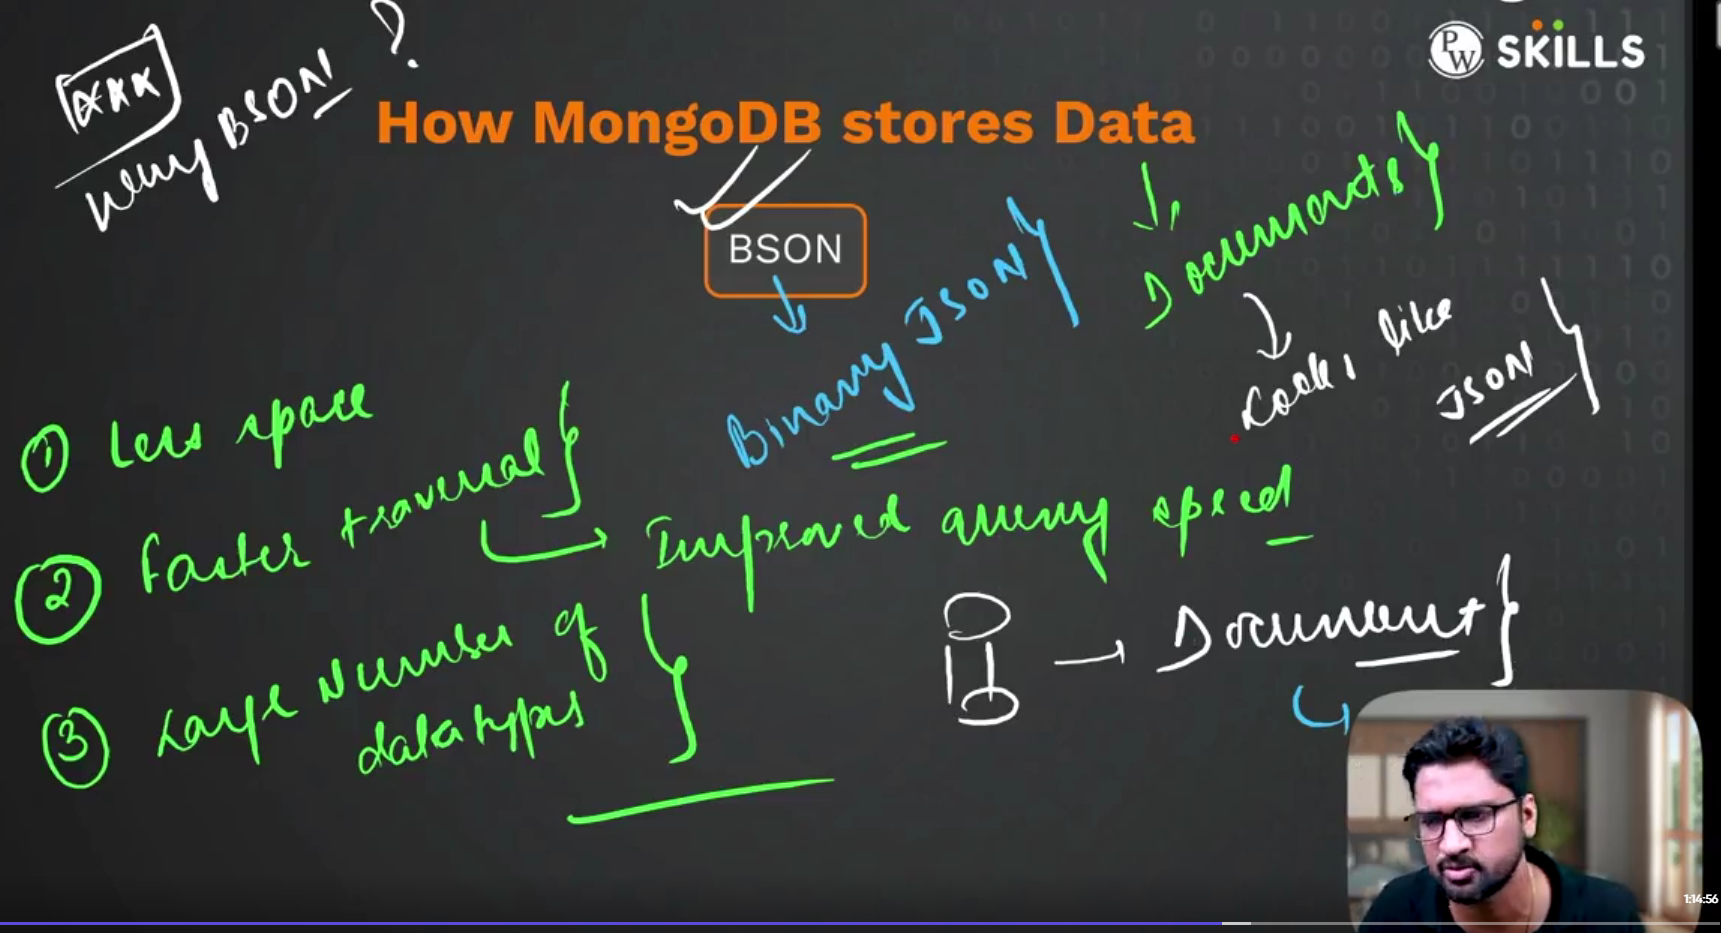 PW SKILLS
***
Why BSON ?
How MongoDB stores Data
BSON
Binary JSON
Documents
Looks like
JSON
① Less space
② Faster traversal
Improved query speed
③ Large Number of
datatypes
Document
1:14:56